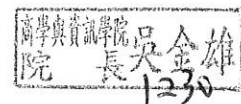 商學與資訊學院
院長吳金雄
1230